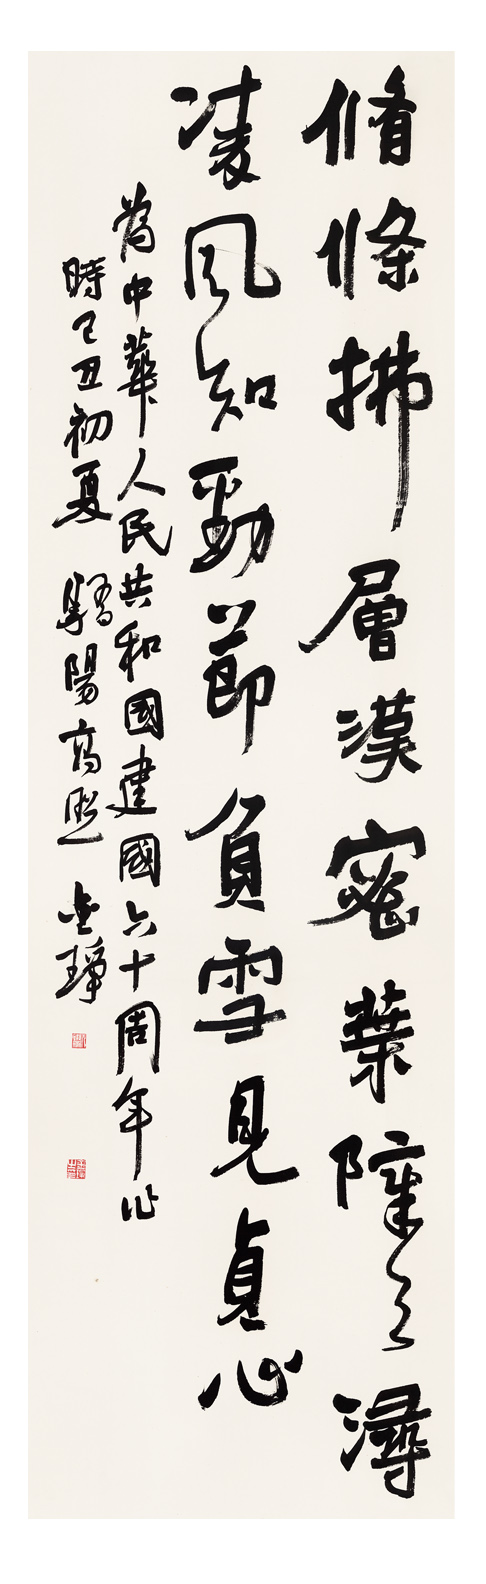 脩條拂層漢密葉障天潯
凌風知勁節負雪見貞心
為中華人民共和國建國六十周年作
時己丑初夏 驕陽高照 金琤